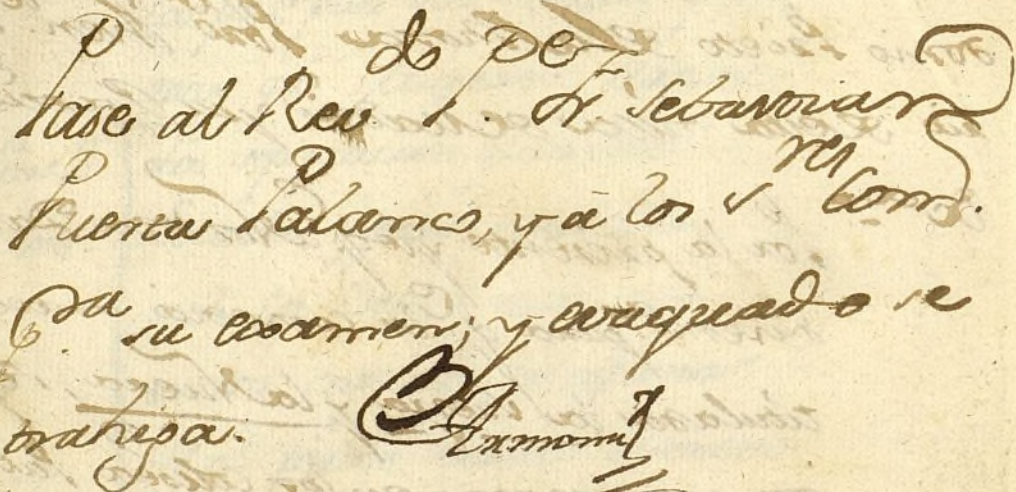 Pase al Rev.do P. pe. Fr. Sebastian
Puerta Palanco, y â los S.res Com.
p.ra su examen; y evaquado se
trahiga.